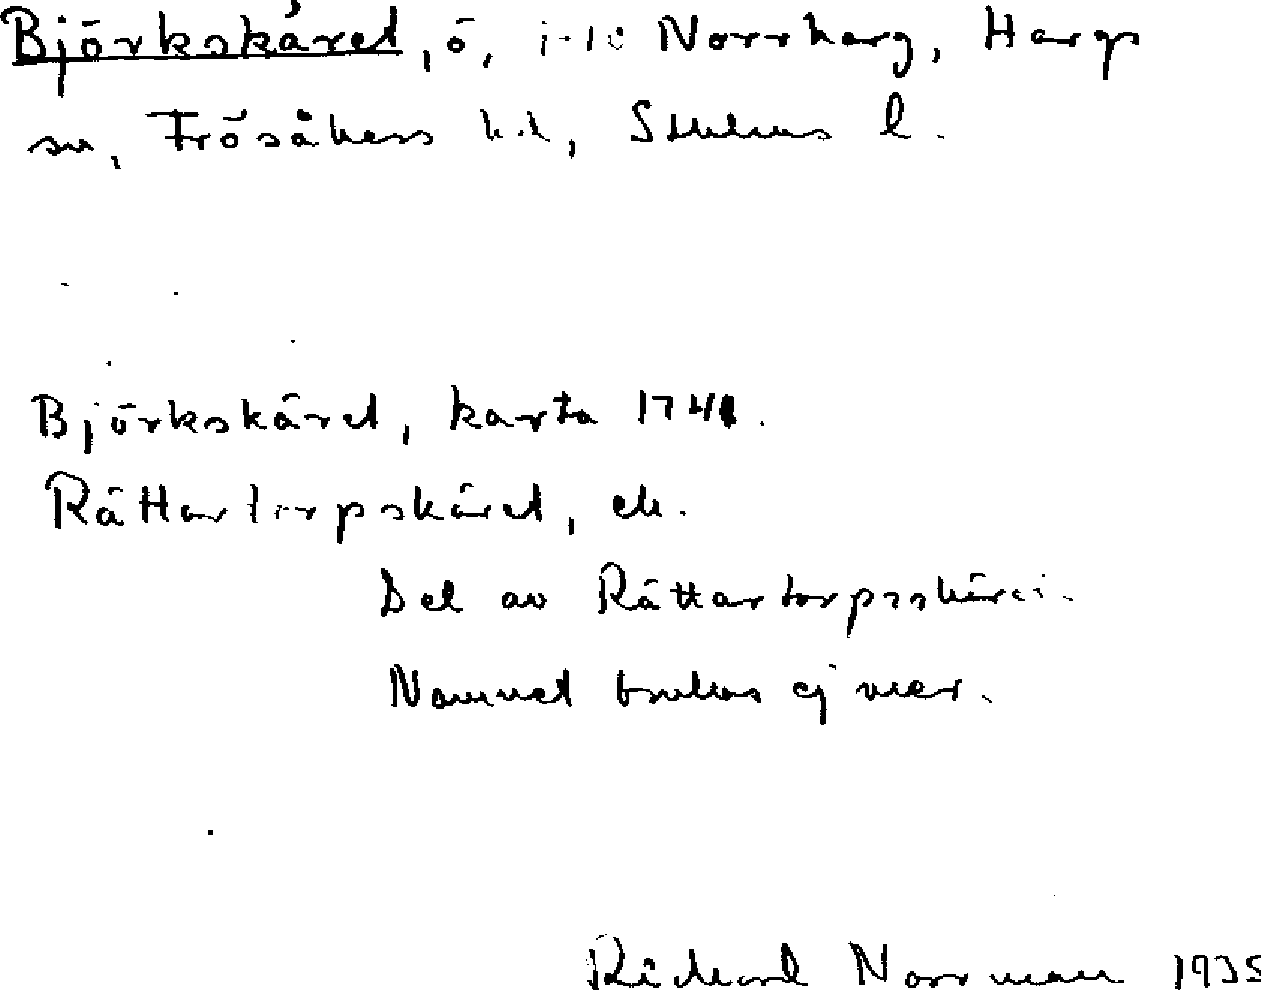 Björkskäret, ö, Norrharg, Hargs
sn, Frösåkers hd, Sthlms l.
Björkskäret, karta 1741.
Rättartorpskäret, ek.
Del av Rättartorpsskäret.
Namnet brukas ej mer.
Rickard Norrman 1935